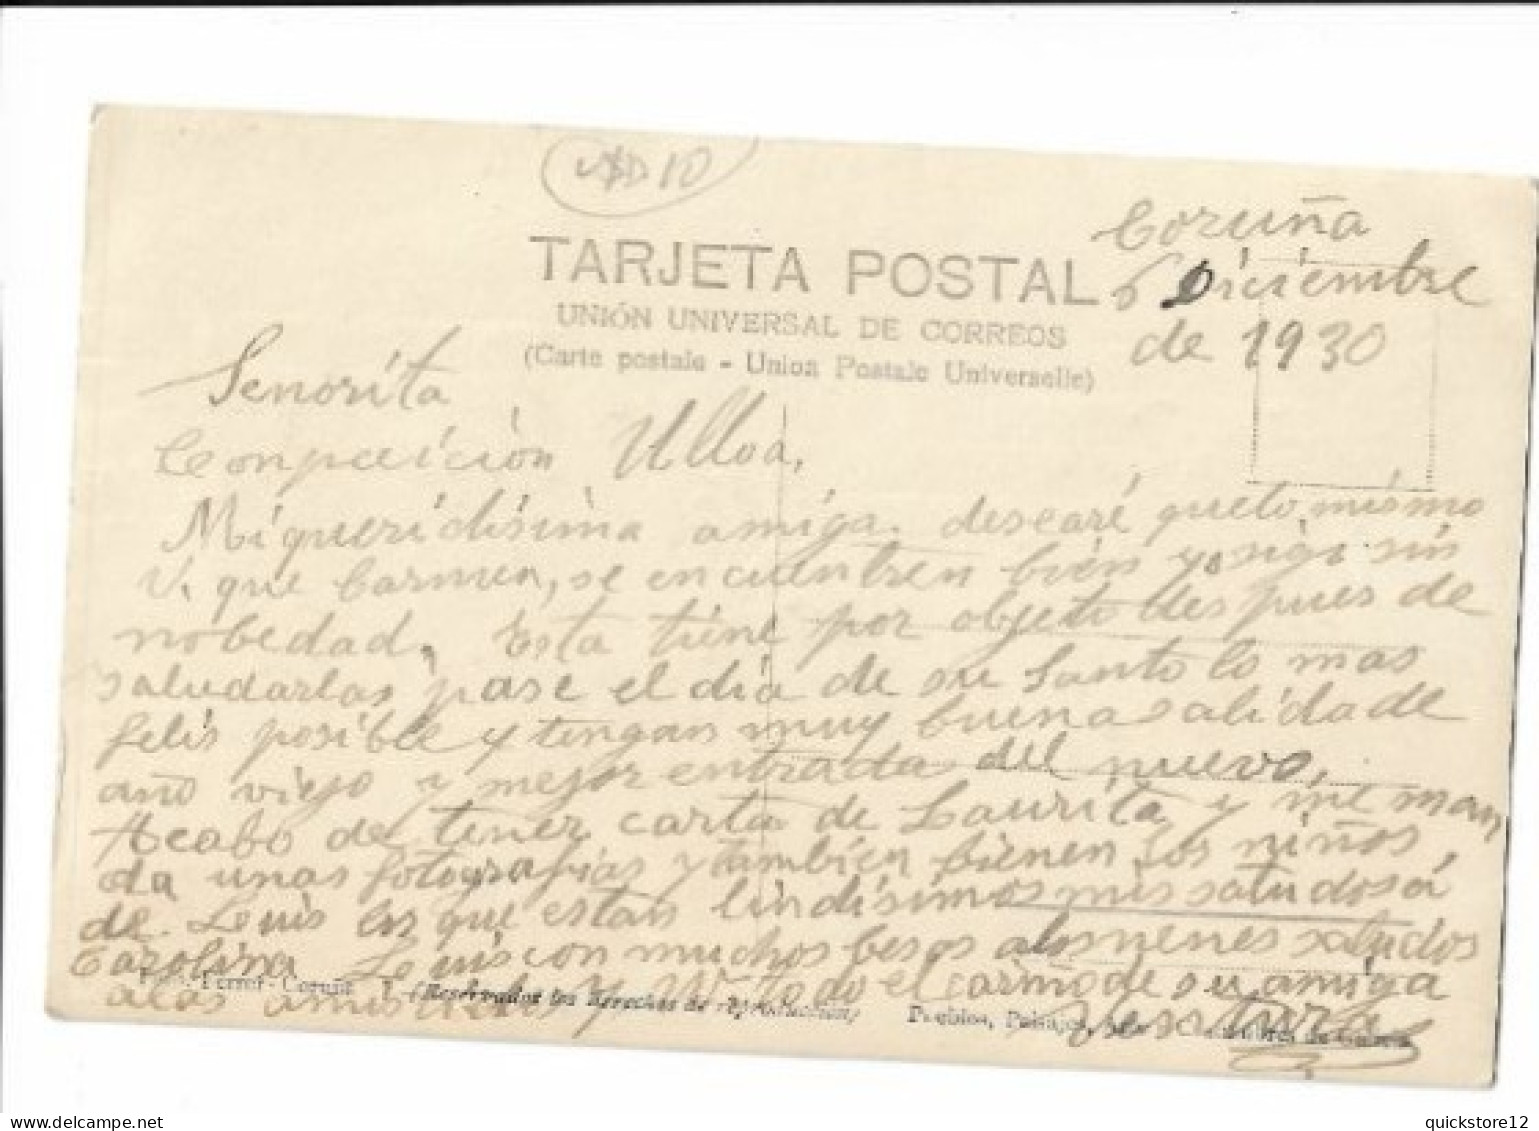 USD 10
Coruña
TARJETA POSTAL
6 Diciembre
UNIÓN UNIVERSAL DE CORREOS
de 1930
(Carte postale - Union Postale Universelle)
Señorita
Conpcicion Ulloa,
Mi queridisima amiga. desearé que lo mismo
V. que Carmen, se encuentren bien yo sigo sin
nobedad. Esta tiene por objeto des pues de
saludarlas pase el dia de su Santo lo mas
felis posible y tengan muy buena salida de
año viejo y mejor entrada del nuevo,
Acabo de tener carta de Laurita y me man
da unas fotografias y tambien bienen los niños,
de Louis en que estan lindisimos mis saludos á
Carolina Louis con muchos besos a los nenes saludos
a las amistades y V. todo el cariño de su amiga
Ventura
Ferrer-Coruña (Reservados los derechos de reproducción) Pueblos, Paisajes, Costumbres de Galicia
quickstore12